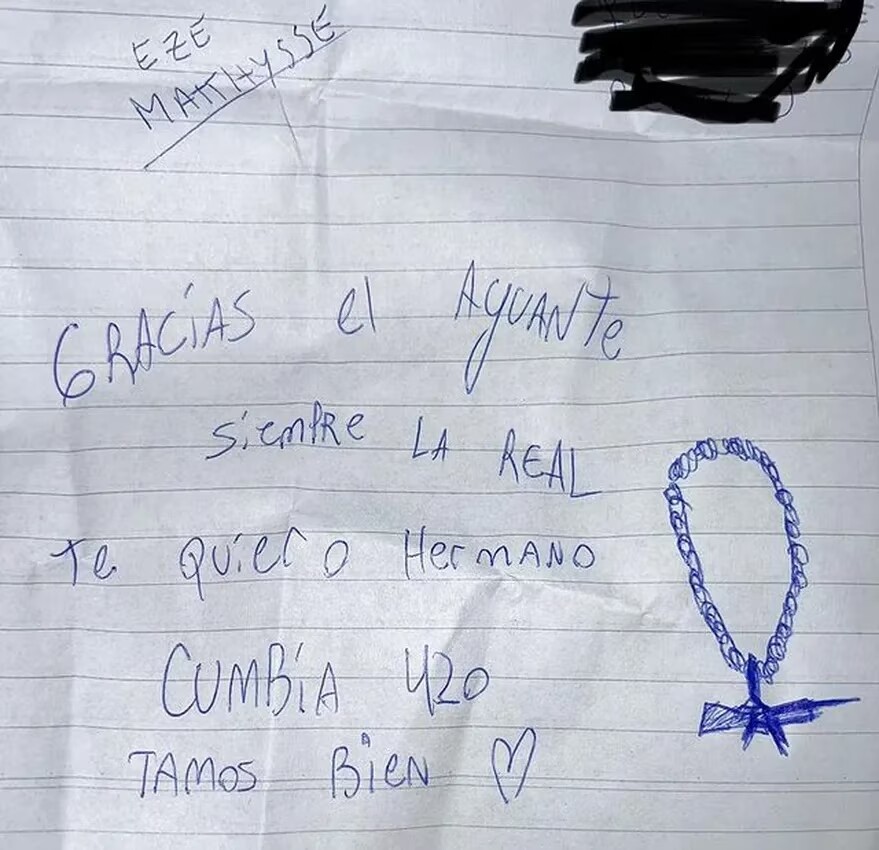 EZE
MATTHYSSE
GRACÍAS el AguANTe
siempre LA REAL
te quiero HermANO
CUMBÍA 420
TAMOS BieN ♡